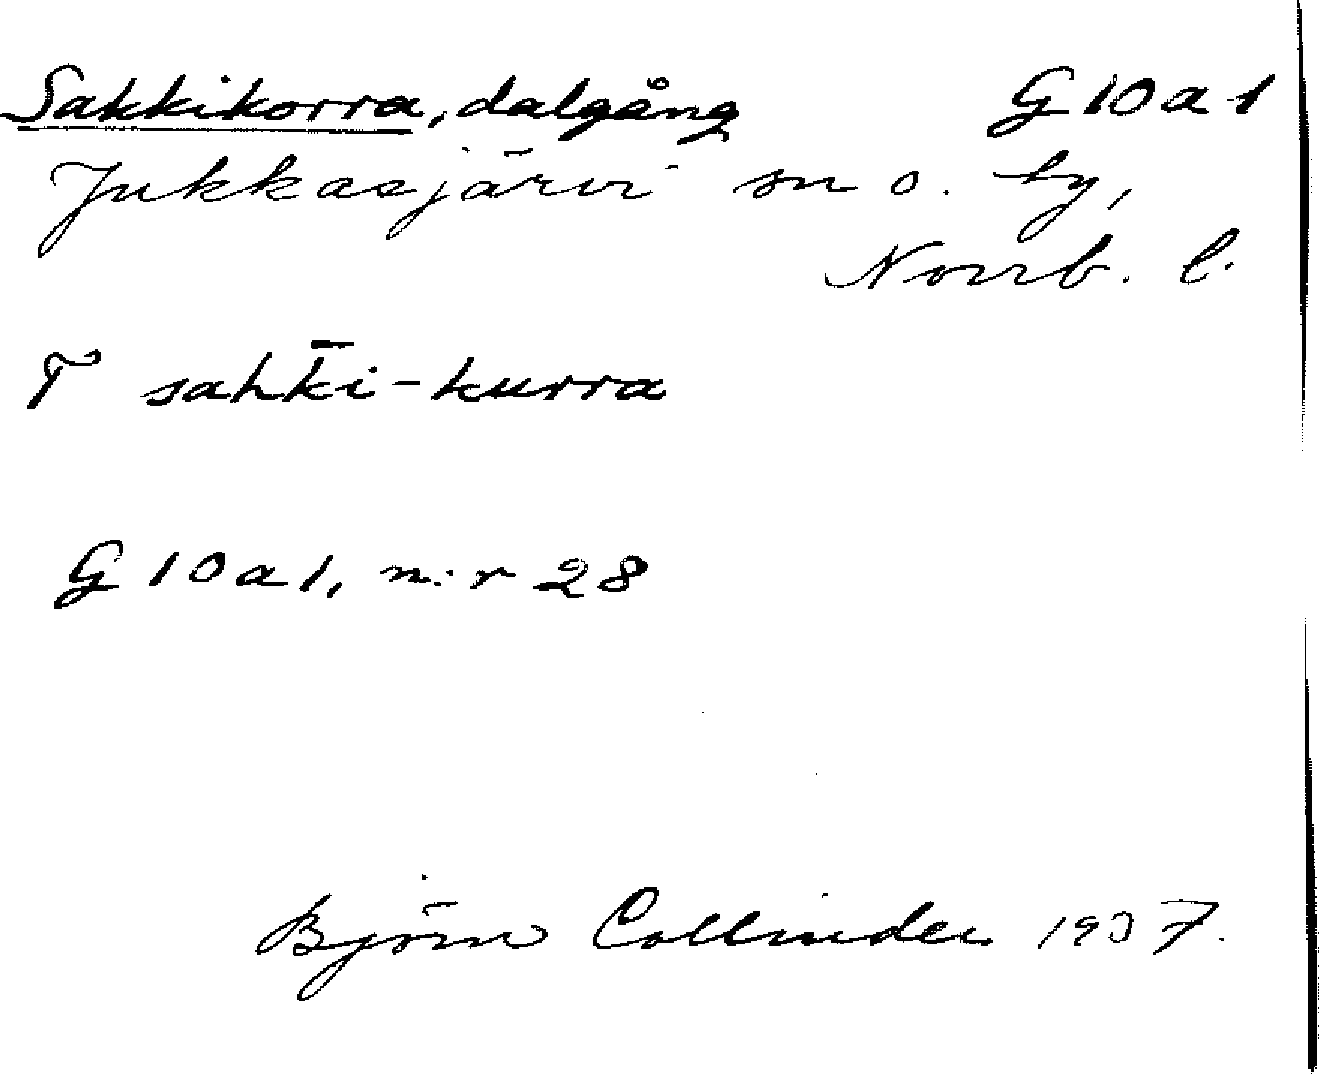 Sakkikorra, dalgång G 10 a 1
Jukkasjärvi sn o. by,
Norrb. l.
T sahk̄i-kurra
G 10 a 1, n:r 28
Björn Collinder 1937.